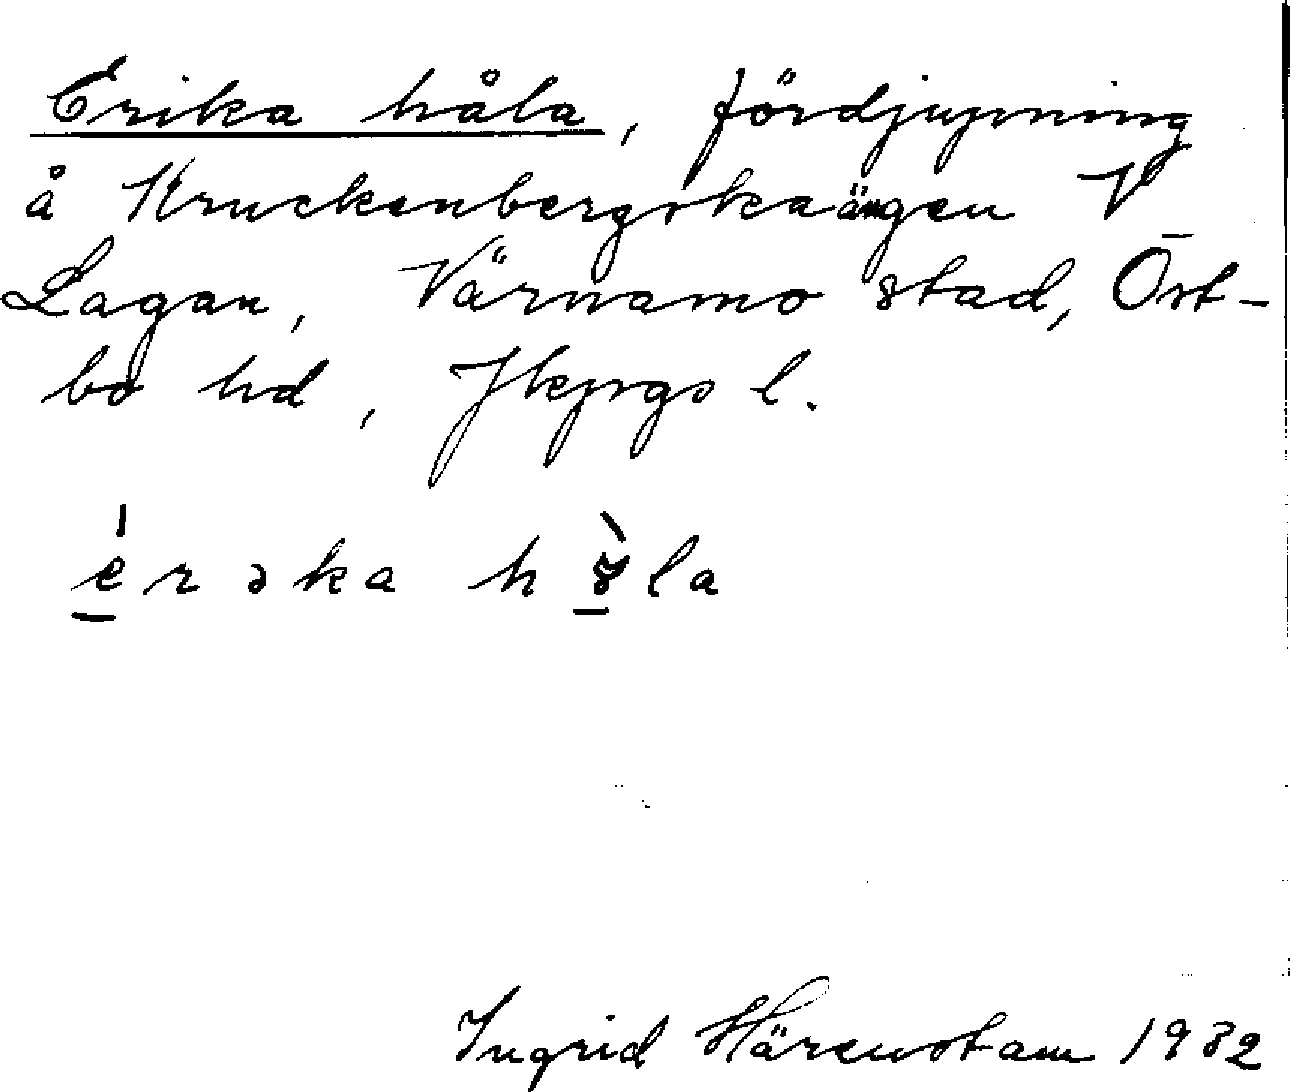 Erika håla, fördjupning
å Kruckenbergska ängen V
Lagan, Värnamo stad, Öst-
bo hd, Jkpgs l.
érəka hòla
Ingrid Härenstam 1932